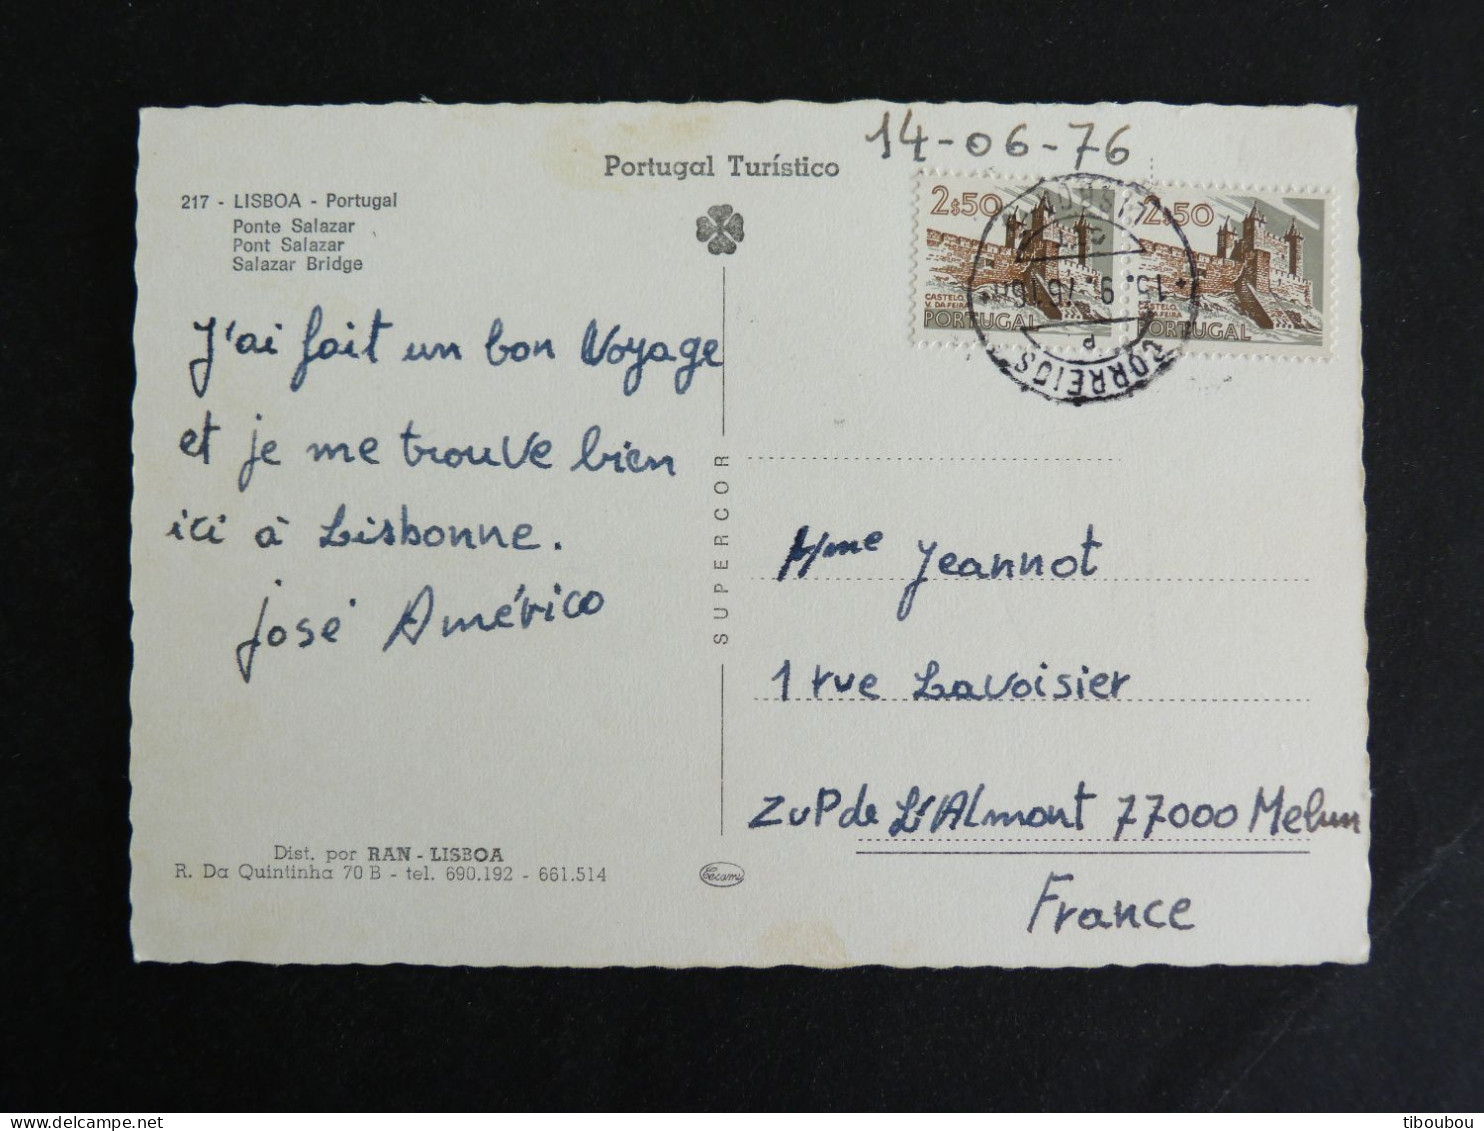 14-06-76
Portugal Turístico
217 - LISBOA - Portugal
Ponte Salazar
Pont Salazar
Salazar Bridge
2$50
CASTELO
V. DA FEIRA
PORTUGAL
2$50
CASTELO
FEIRA
PORTUGAL
CORREIOS
J'ai fait un bon Voyage
et je me trouve bien
ici à Lisbonne.
José Américo
SUPERCOR
Mme Jeannot
1 rue Lavoisier
ZUP de L'Almont 77000 Melun
France
Dist. por RAN - LISBOA
R. Da Quintinha 70 B - tel. 690.192 - 661.514
Cecami
tiboubou